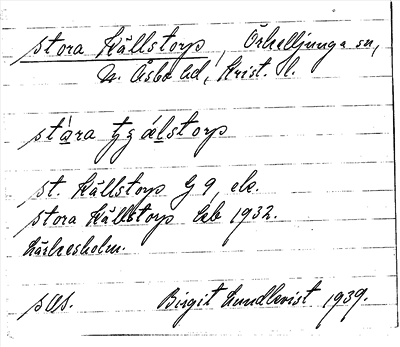 Stora Källstorp, Örkelljunga sn,
N. Åsbo hd, Krist. l.
stàra tj älstorp
St. Källstorp G 9, ek.
Stora Källstorp lzb 1932.
Kärkesholm.
sms. Birgit Lundkvist 1939.